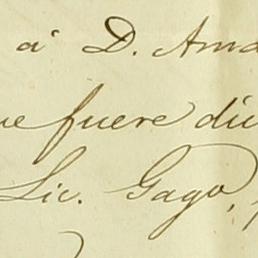 á D. Ama
ue fuere diu
Lic. Gago,